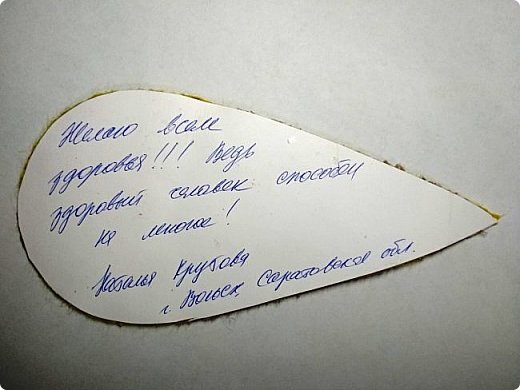 Желаю всем
здоровья!!! Ведь
здоровый человек способен
на многое!
Наталья Крутова
г. Вольск, Саратовская обл.